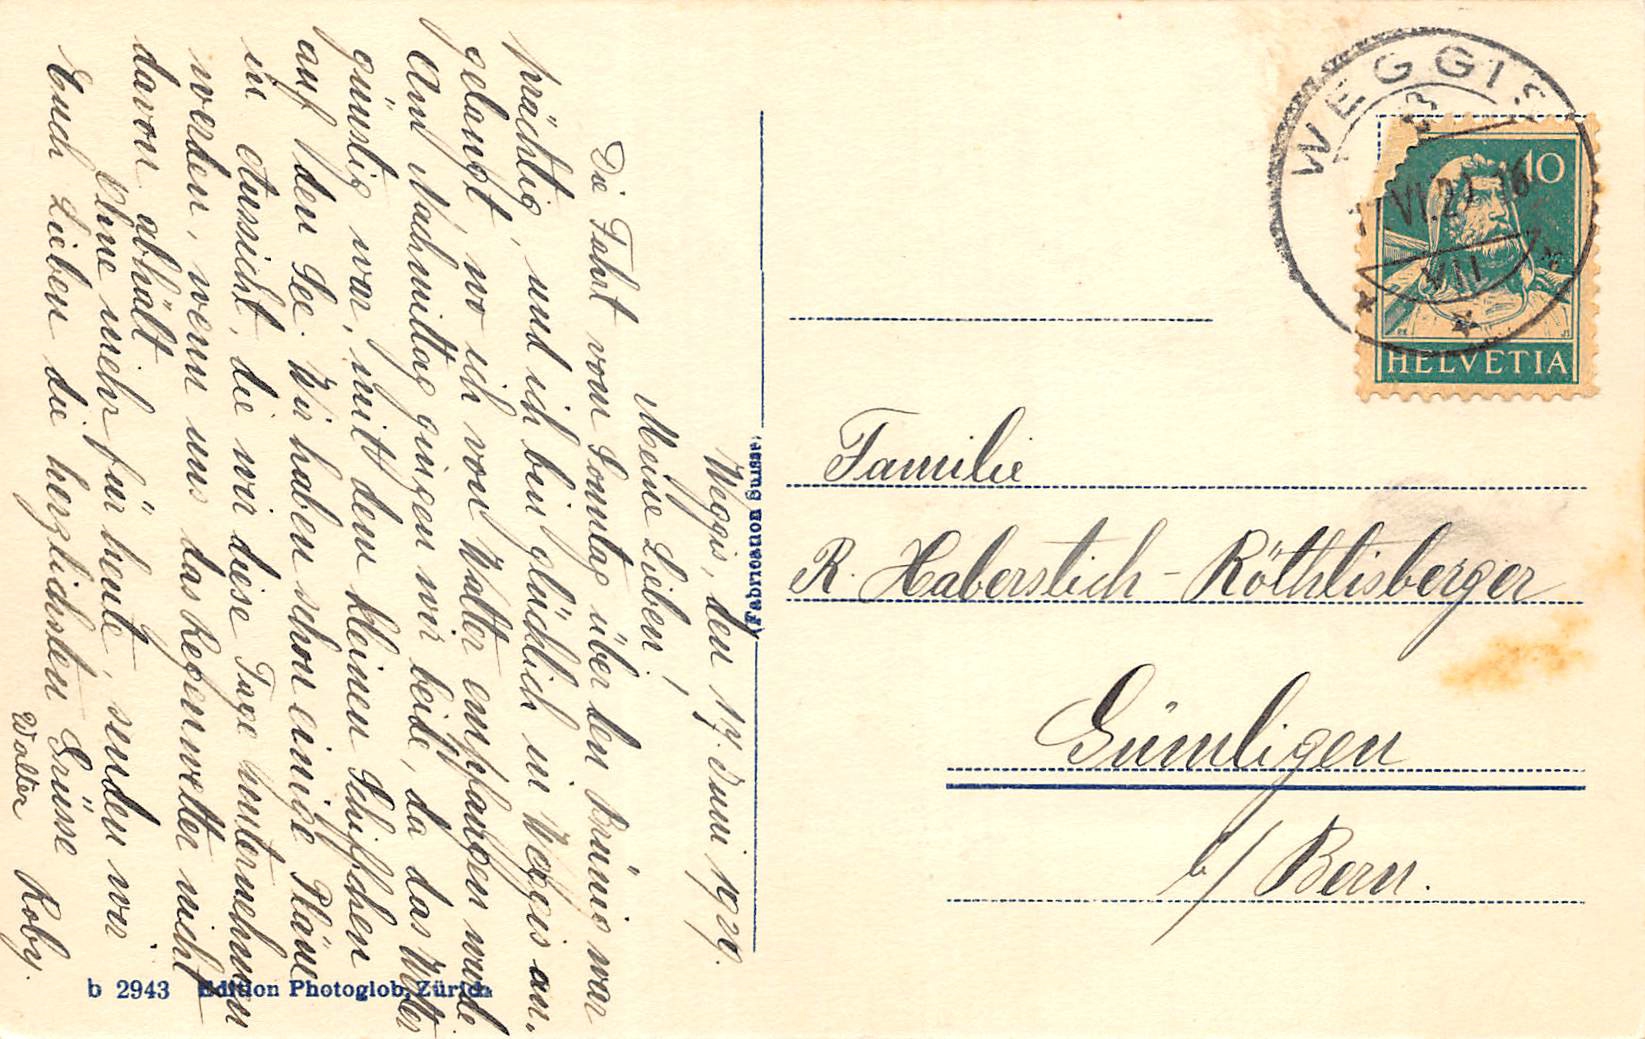 Weggis, den 17. Juni 1929.
Meine Lieben!
Die Fahrt vom Sonntag über den Brünig war
prächtig, und ich bin glücklich in Weggis an-
gelangt, wo ich von Walter empfangen wurde
Am Nachmittag gingen wir beide, da das Wetter
günstig war, mitt dem kleinen Schiffchen
auf den See. Wir haben schon einige Pläne
in Aussicht, die wir diese Tage unternehmen
werden, wenn uns das Regenwetter nicht
davon abhält.
Ohne mehr für heute, senden wir
Euch Lieben die herzlichsten Grüsse
Walter Roby.
b 2943 Edition Photoglob, Zürich
(Fabrication Suisse)
WEGGIS
VI.2
VII
10
HELVETIA
Familie
R. Haberstich-Röthlisberger
Gümligen
b/ Bern.